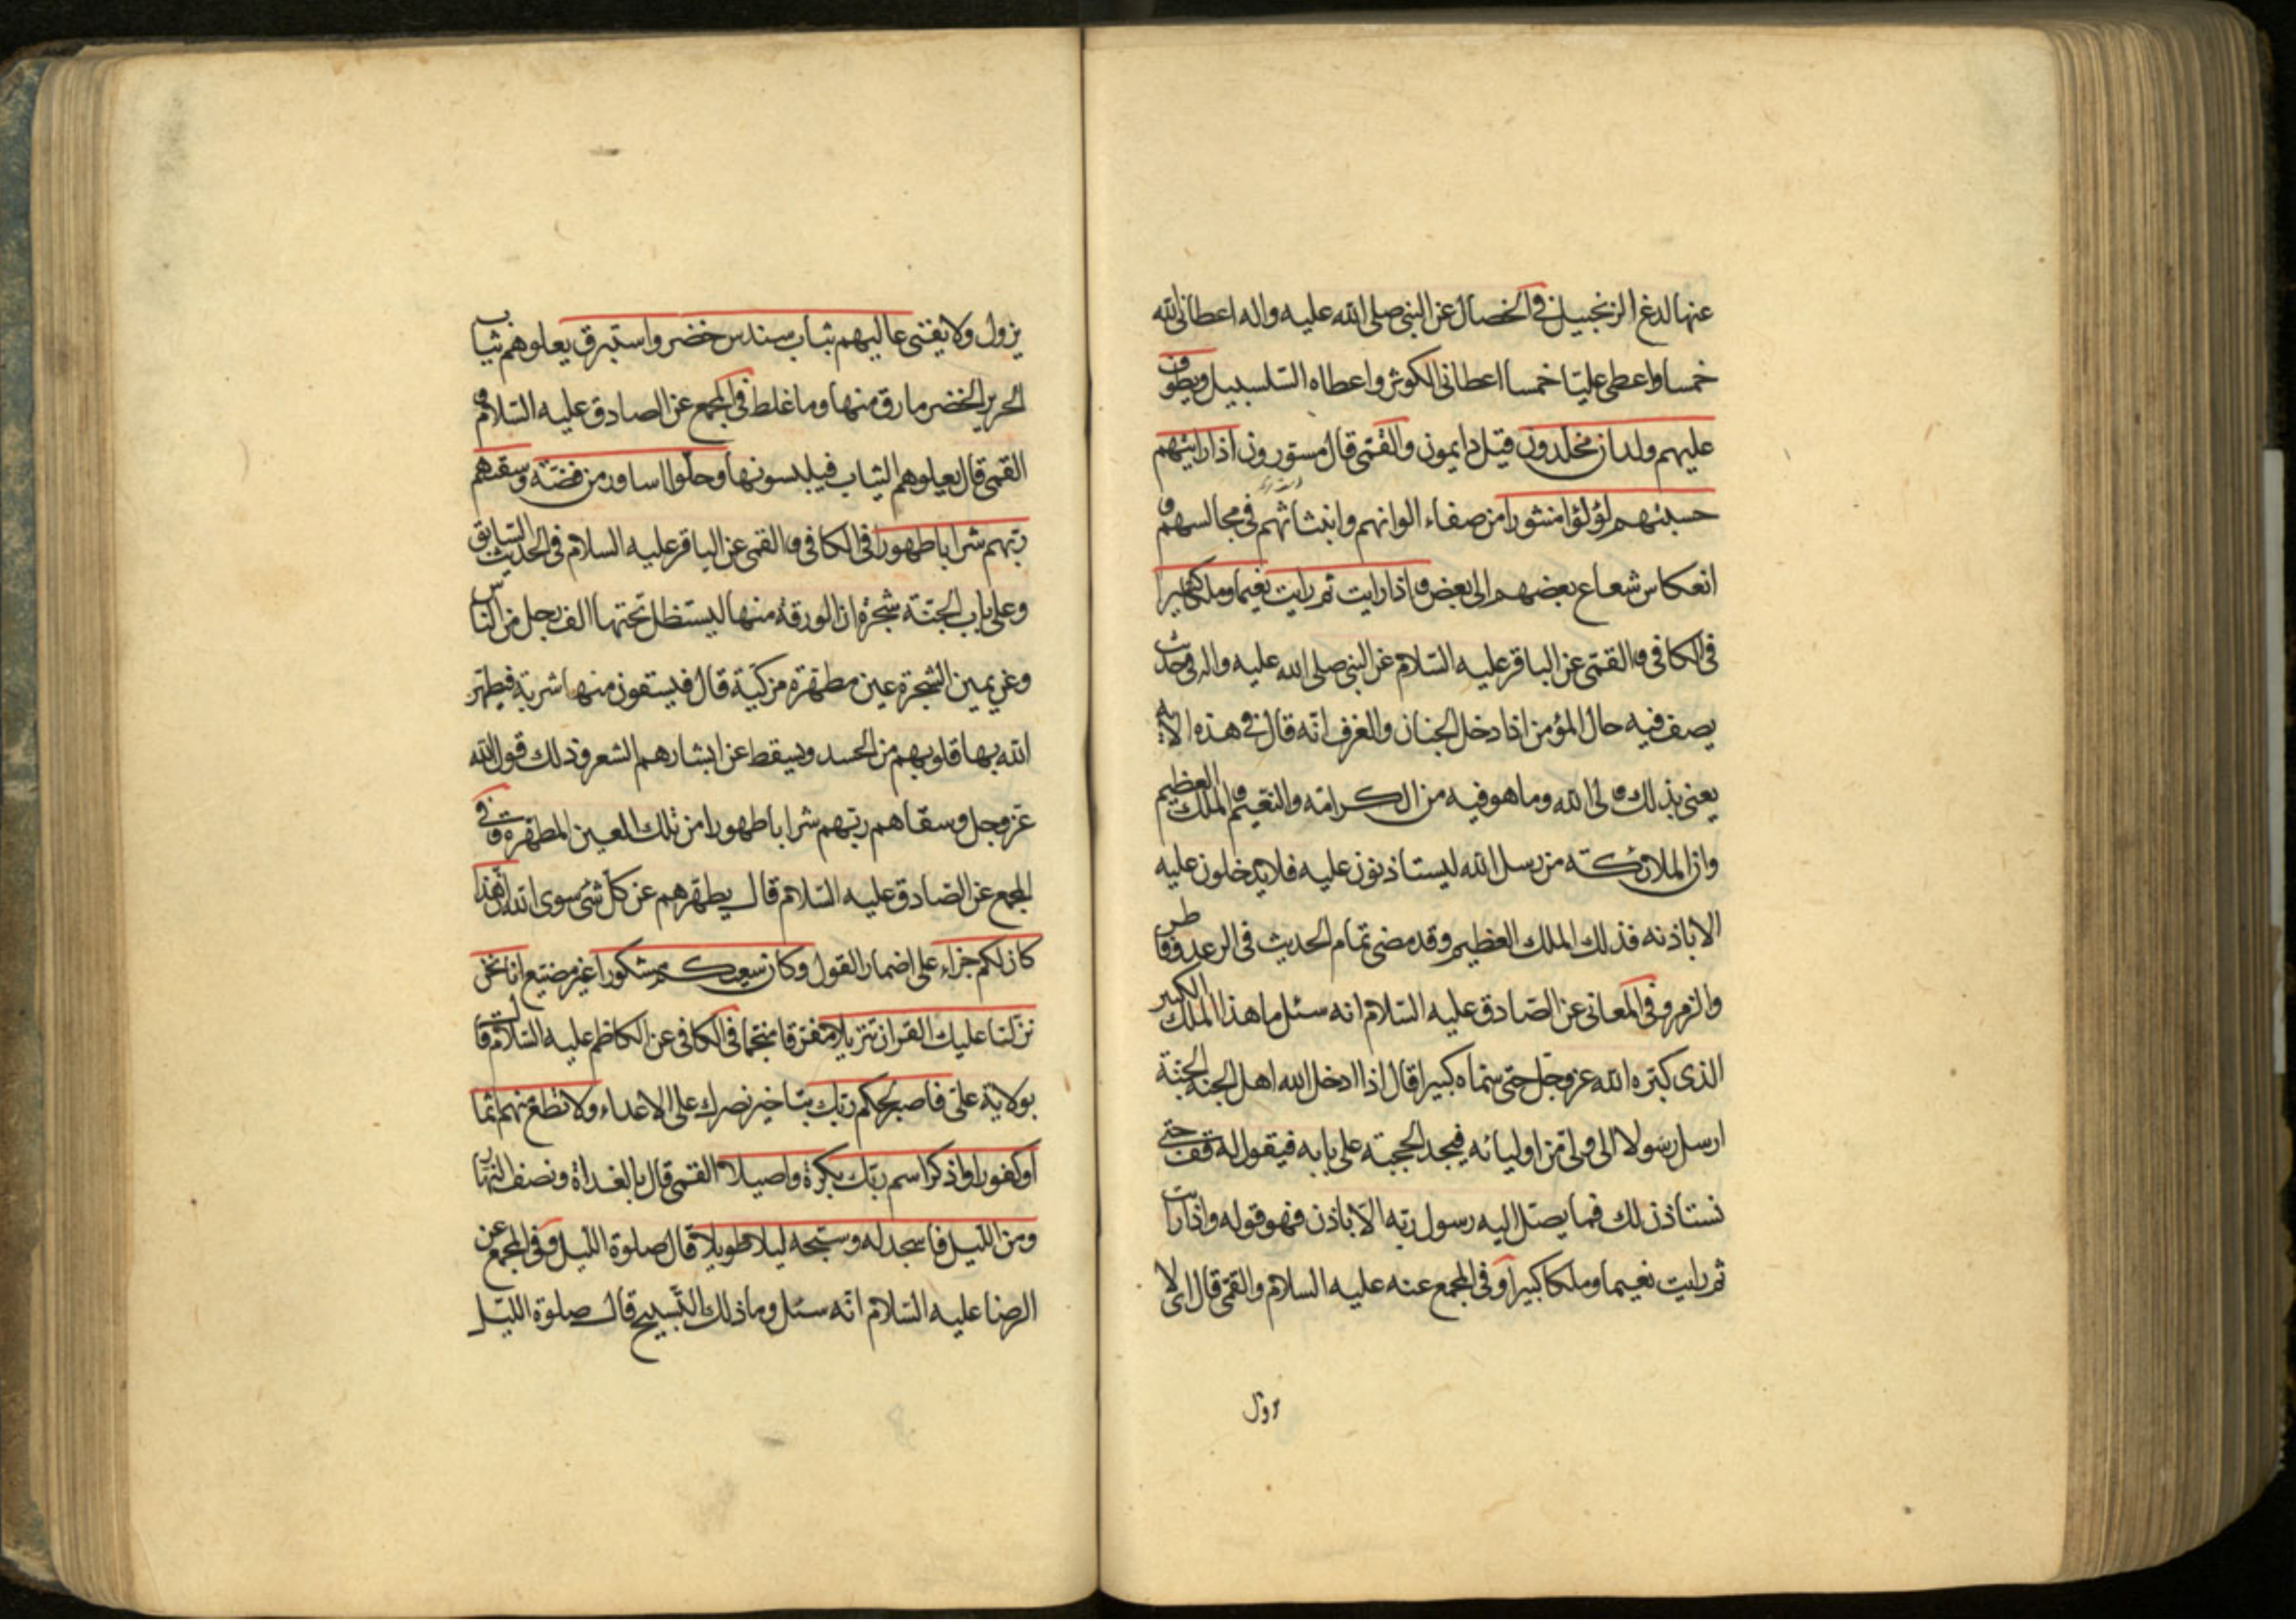 عنها لدغ الزنجبيل في الخصال عن النبي صلى الله عليه واله اعطاني الله
خمسا واعطى عليّا خمسا اعطاني الكوثر واعطاه السّلسبيل ويطوف
عليهم ولدان مخلّدون قيل دايمون والقمّى قال مستورون اذا رايتهم
حسبتهم لؤلؤا منثورا من صفاء الوانهم وانبثاثهم في مجالسهم و
انعكاس شعاع بعضهم الى بعض واذا رايت ثم رايت نعيما وملكا كبيرا
في الكافي والقمّى عن الباقر عليه السّلام عن النبي صلى الله عليه واله في حديث
يصف فيه حال المؤمن اذا دخل الجنان والغرف انّه قال في هذه الاية
يعنى بذلك ولي الله وما هو فيه من الكرامة والنّعيم والملك العظيم
وان الملائكة من رسل الله ليستاذنون عليه فلا يدخلون عليه
الا باذنه فذلك الملك العظيم وقد مضى تمام الحديث في الرعد وفاطر
والزمر وفي المعانى عن الصّادق عليه السّلام انه سئل ما هذا الملك الكبير
الذى كبّره الله عز وجل حتى سمّاه كبيرا قال اذا ادخل الله اهل الجنة الجنّة
ارسل رسولا الى ولىّ من اوليائه فيجد الحجبة على بابه فيقول له قف حتى
نستاذن لك فما يصل اليه رسول ربّه الّا باذن فهو قوله واذا رايت
ثم رايت نعيما وملكا كبيرا وفي المجمع عنه عليه السلام والقمّى قال اى لا
يزول
يزول ولا يفنى عاليهم ثياب سندس خضر واستبرق يعلوهم ثياب
الحرير الخضر ما رق منها وما غلظ في المجمع عن الصادق عليه السّلام و
القمى قال يعلوهم الثياب فيلبسونها وحلّوا اساور من فضّة وسقيهم
ربّهم شرابا طهورا في الكافي والقمى عن الباقر عليه السلام في الحديث السّابق
وعلى باب الجنّة شجرة ان الورقة منها ليستظل تحتها الف رجل من النّاس
وعن يمين الشجرة عين مطهّرة مزكيّة قال فيسقون منها شربة فيطهّر
الله بها قلوبهم من الحسد ويسقط عن ابشارهم الشعر وذلك قول الله
عز وجل وسقاهم ربّهم شرابا طهورا من تلك العين المطهّرة وفي
المجمع عن الصّادق عليه السّلام قال يطهّرهم عن كلّ شئ سوى الله ان هذا
كان لكم جزاء على اضمار القول وكان سعيكم مشكورا غير مضيّع انا نحن
نزّلنا عليك القران تنزيلا مفرّقا منجّما في الكافي عن الكاظم عليه السّلام قالت
بولاية علىّ فاصبر لحكم ربّك بتاخير نصرك على الاعداء ولا تطع منهم اثما
او كفورا واذكر اسم ربّك بكرة واصيلا القمى قال بالغداة ونصف النّهار
ومن اللّيل فاسجد له وسبّحه ليلا طويلا قال صلوة اللّيل وفي المجمع عن
الرضا عليه السّلام انّه سئل وما ذلك التّسبيح قال صلوة اللّيل